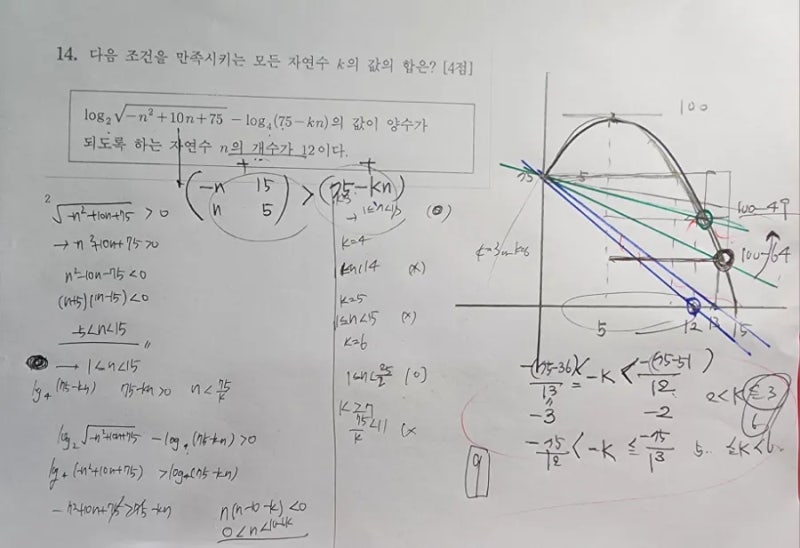 14. 다음 조건을 만족시키는 모든 자연수 k의 값의 합은? [4점]
log₂√(-n²+10n+75) - log₄(75-kn)의 값이 양수가
되도록 하는 자연수 n의 개수가 12이다.
+ +
(-n 15
n 5) > (75-kn)
√(-n²+10n+75) > 0
n²-10n-75<0
(n+5)(n-15)<0
-5<n<15
→ 1≤n<15
75-kn>0 n<75/k
log₂√(-n²+10n+75) - log₄(75-kn)>0
log₄(-n²+10n+75) > log₄(75-kn)
-n²+10n+75>75-kn
n(n-10-k)<0
k=4
(x)
k=5
1≤n<15 (x)
k=6
k≥7
75/k<11
100
75
5
100-49
100-64
5
12
13
15
-(75-36)/13 ≤ -k < -(75-51)/12
-3 -2
2<k≤3
6
-75/12 < -k ≤ -75/13
≤k<6
9